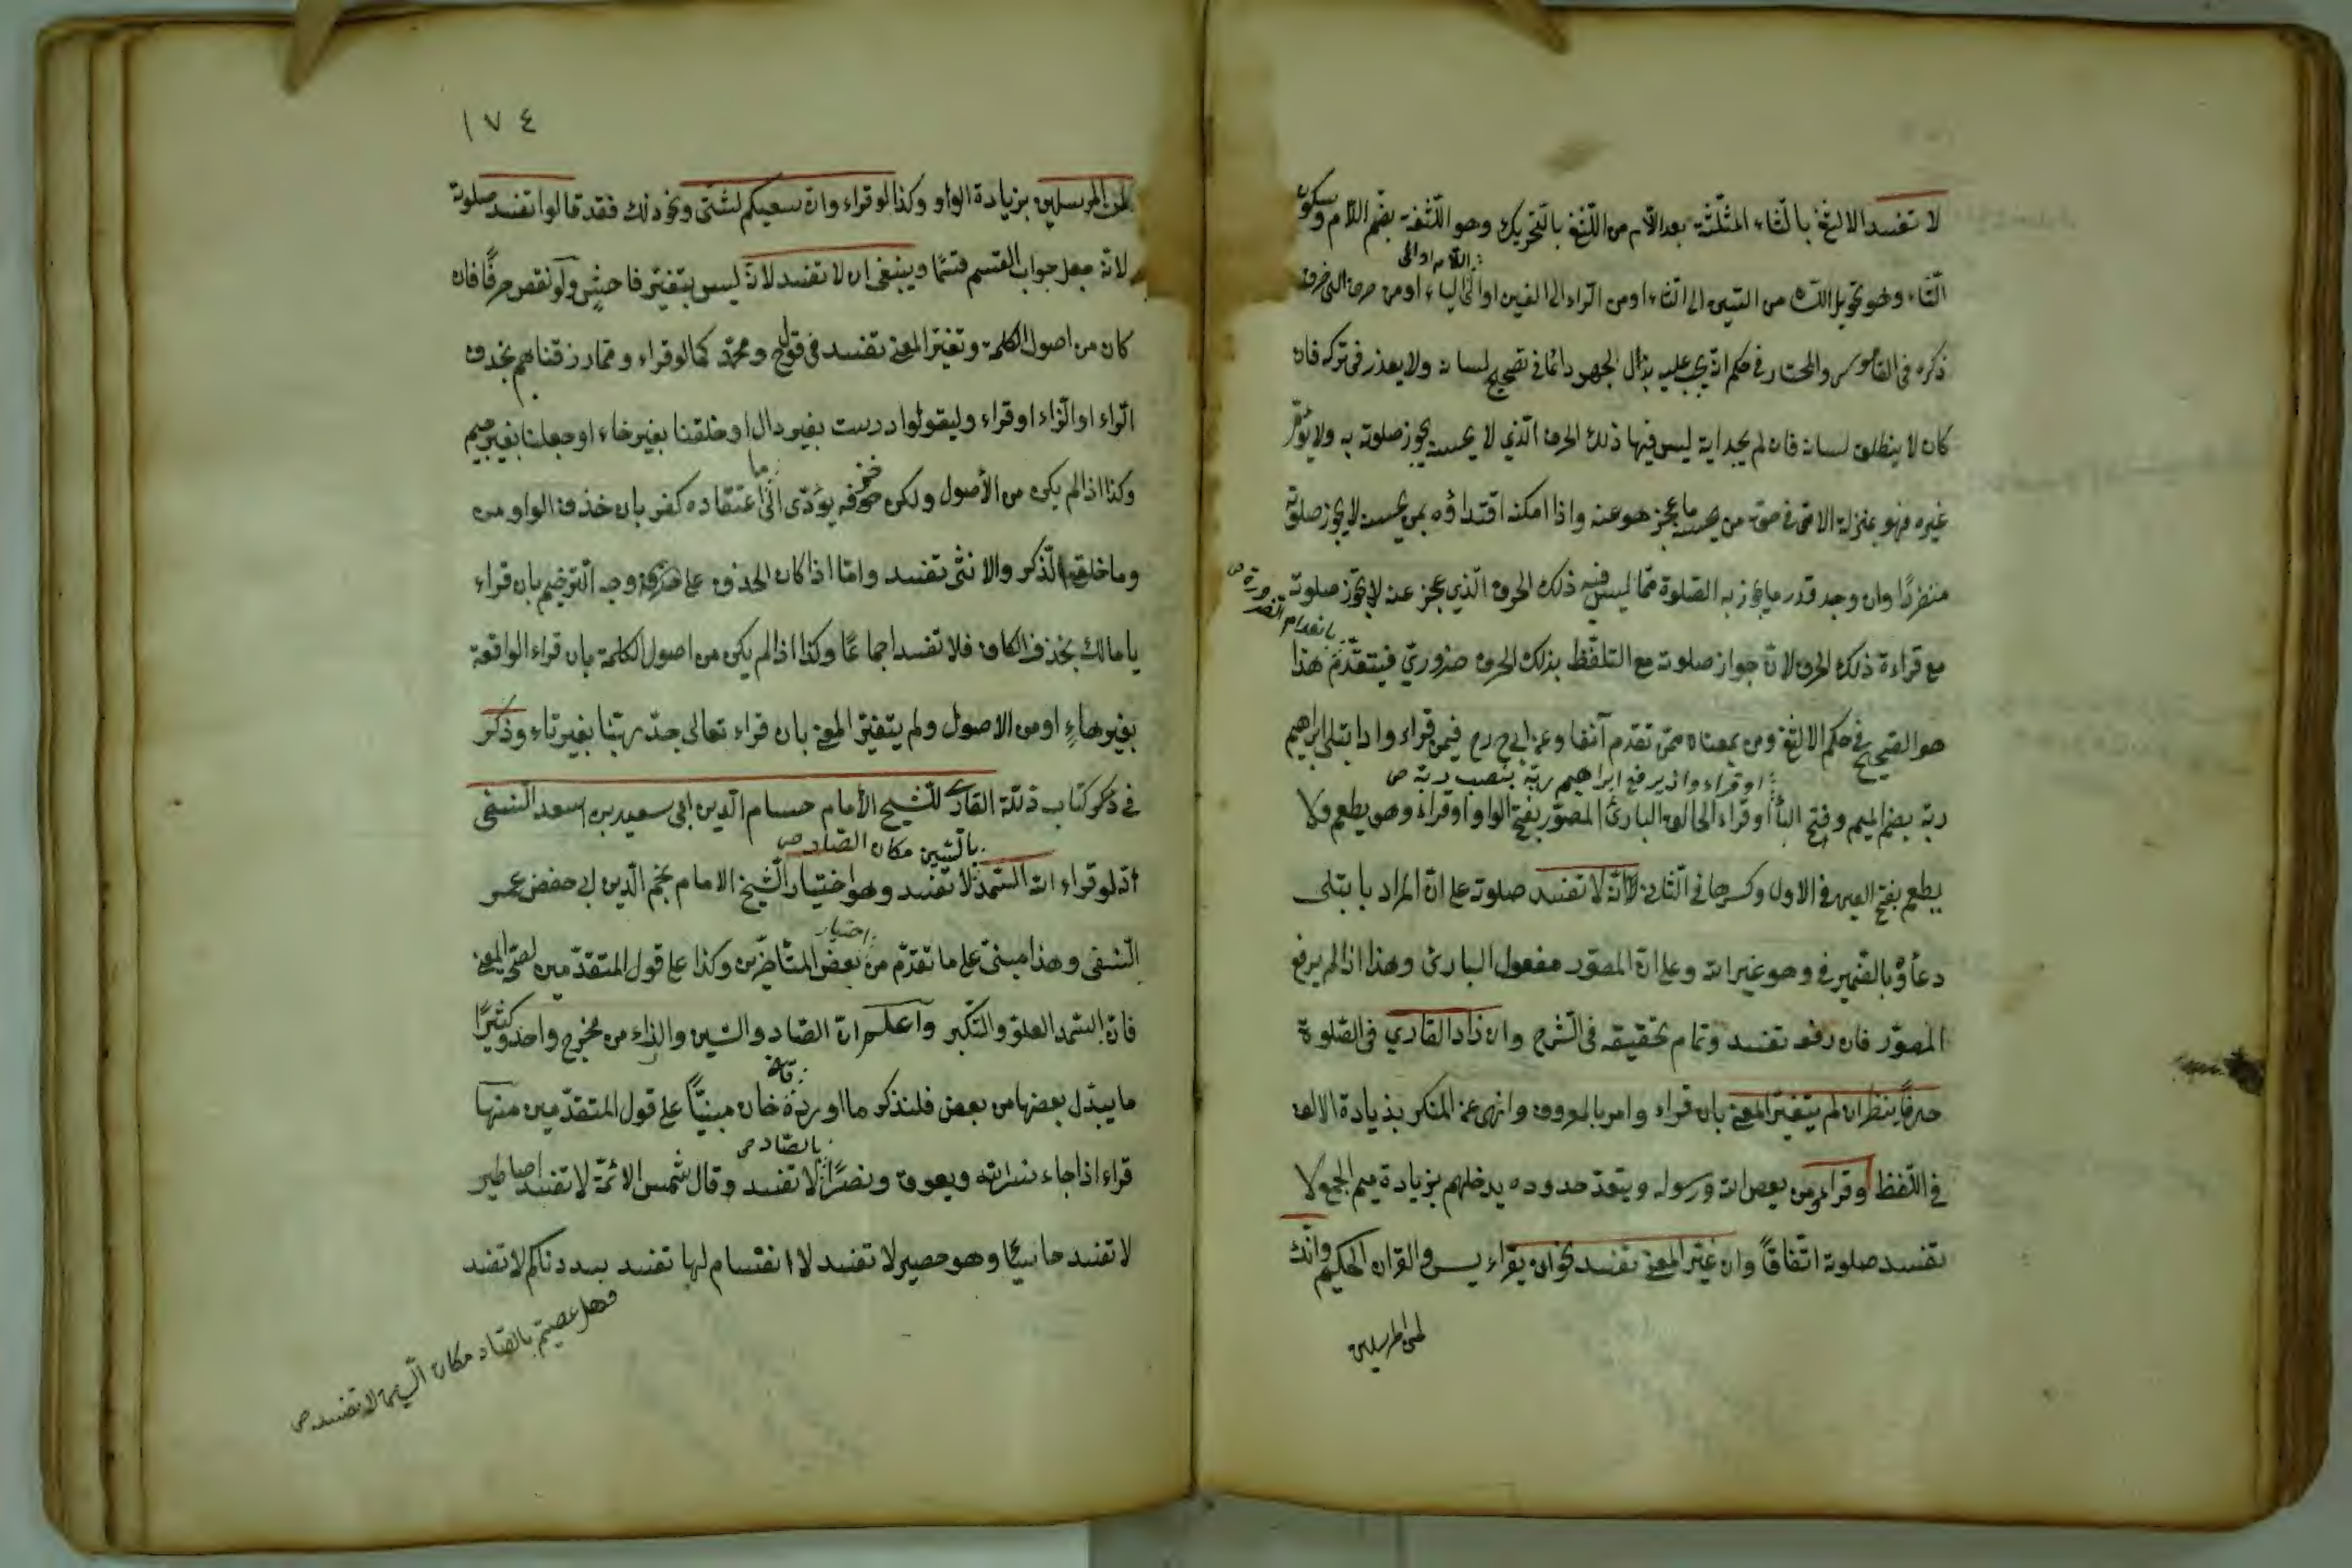 لا تفسد الالثغ بالثاء المثلثة بعد اللام من اللثغ بالتحريك وهو اللثغة بضم اللام وسكون
الثاء وهو تحويل اللسان من السين الى الثاء او من الراء الى الغين او الى الياء او من حرف الى حرف
اللام او الى
ذكره فى القاموس والمختار فى حكم انه يجب عليه بذل الجهد دائما فى تصحيح لسانه ولا يعذر فى تركه فان
كان لا ينطلق لسانه فان لم يجد اية ليس فيها ذلك الحرف الذي لا يحسنه يجوز صلوته به ولا يؤم
غيره فهو بمنزلة الامى فى حق من يحسن ما عجز هو عنه واذا امكنه اقتداؤه بمن يحسنه لا يجوز صلوته
منفردًا وان وجد قدر ما يجوز به الصلوة مما ليس فيه ذلك الحرف الذي عجز عنه لا يجوز صلوته
مع قراءة ذلك الحرف لان جواز صلوته مع التلفظ بذلك الحرف ضروري فينعدم هذا
بانعدام الضرورة ص
هو الصحيح فى حكم الالثغ ومن بمعناه ممن تقدم آنفا وعن ابى ح رح فيمن قراء واذ ابتلى ابراهيم
او قراء واذ يرفع ابراهيم ربه بنصب ربه ص
ربه بضم الميم وفتح الباء او قراء الخالق البارئ المصور بفتح الواو او قراء وهو يطعم ولا
يطعم بفتح العين فى الاول وكسرها فى الثانى لأنه لا تفسد صلوته على ان المراد بابتلى
دعاؤه بالضمير فى وهو غير الله وعلى ان المصور مفعول البارئ وهذا اذا لم يرفع
المصور فان رفعه تفسد وتمام تحقيقه فى الشرح وان زاد القاري فى الصلوة
حرفًا ينظر ان لم يتغير المعنى بان قراء وامر بالمعروف وانهى عن المنكر بذيادة الالف
فى اللفظ وقراء ومن يعص الله ورسوله ويتعد حدوده يدخلهم بزيادة ميم الجمع لا
تفسد صلوته اتفاقًا وان غير المعنى تفسد نحو ان يقراء يس والقران الحكيم وانك
لمن المرسلين
١٧٤
لمن المرسلين بزيادة الواو وكذا لو قراء وان سعيكم لشتى ونحو ذلك فقد قالوا تفسد صلوته
لانه جعل جواب القسم قسمًا وينبغى ان لا تفسد لانه ليس بتغير فاحش ولو نقص حرفًا فان
كان من اصول الكلمة وتغير المعنى تفسد فى قول ح ومحمد كما لو قراء ومما رزقناهم بحذف
الراء او الزاء او قراء وليقولوا درست بغير دال او خلقنا بغير خاء او جعلنا بغير جيم
وكذا اذا لم يكن من الأصول ولكن حذفه يؤدى الى ما اعتقاده كفر بان خذف الواو من
وما خلق الذكر والانثى تفسد واما اذا كان الحذف على وجه الترخيم بان قراء
يا مالك بخذف الكاف فلا تفسد اجماعًا وكذا اذا لم يكن من اصول الكلمة بان قراء الواقعة
بغير هاءٍ او من الاصول ولم يتغير المعنى بان قراء تعالى جد ربنا بغير تاء وذكر
فى ذكر كتاب ذلة القارى للشيخ الأمام حسام الدين ابى سعيد بن اسعد النسفى
انه لو قراء الله السمد لا تفسد وهو اختيار الشيخ الامام نجم الدين ابى حفص عمر
بالسين مكان الصاد ص
النسفى وهذا مبنى على ما تقدم من اختيار بعض المتأخرين وكذا على قول المتقدمين لصحة المعنى
فان السمد العلو والتكبر وآعلم ان الصاد والسين والزاء من مخرج واحد وكثيرًا
ما يبدل بعضها من بعض فلنذكر ما اورده قاض خان مبنيًّا على قول المتقدمين منها
قراء اذا جاء نسر الله ويعوق ونصرًا بالصاد ص لا تفسد وقال شمس الائمة لا تفسد اصاطير
لا تفسد حاسئًا وهو حصير لا تفسد لا انفسام لها تفسد سددناكم لا تفسد
فهل عصيتم بالصاد مكان السين لا تفسد ص